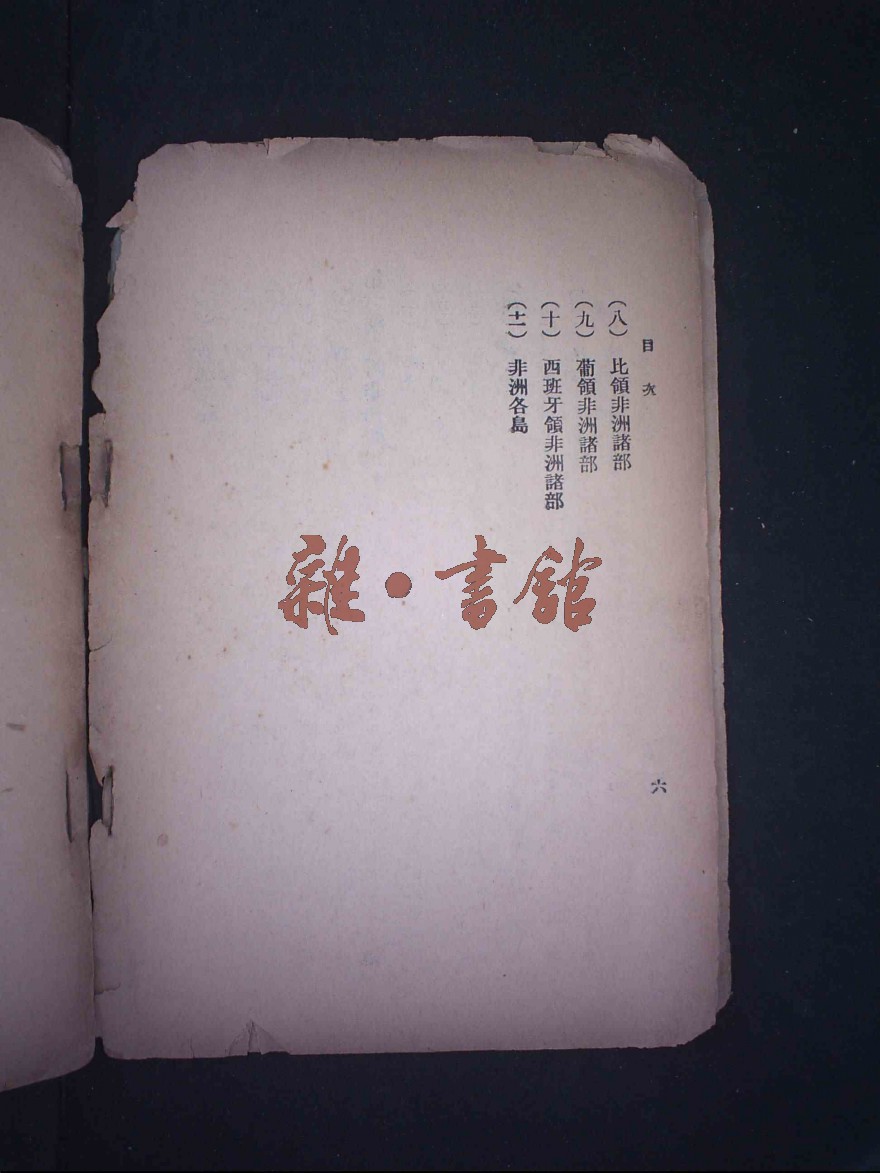 目次
(八) 比領非洲諸部
(九) 葡領非洲諸部
(十) 西班牙領非洲諸部
(十一) 非洲各島
六
雜·書館